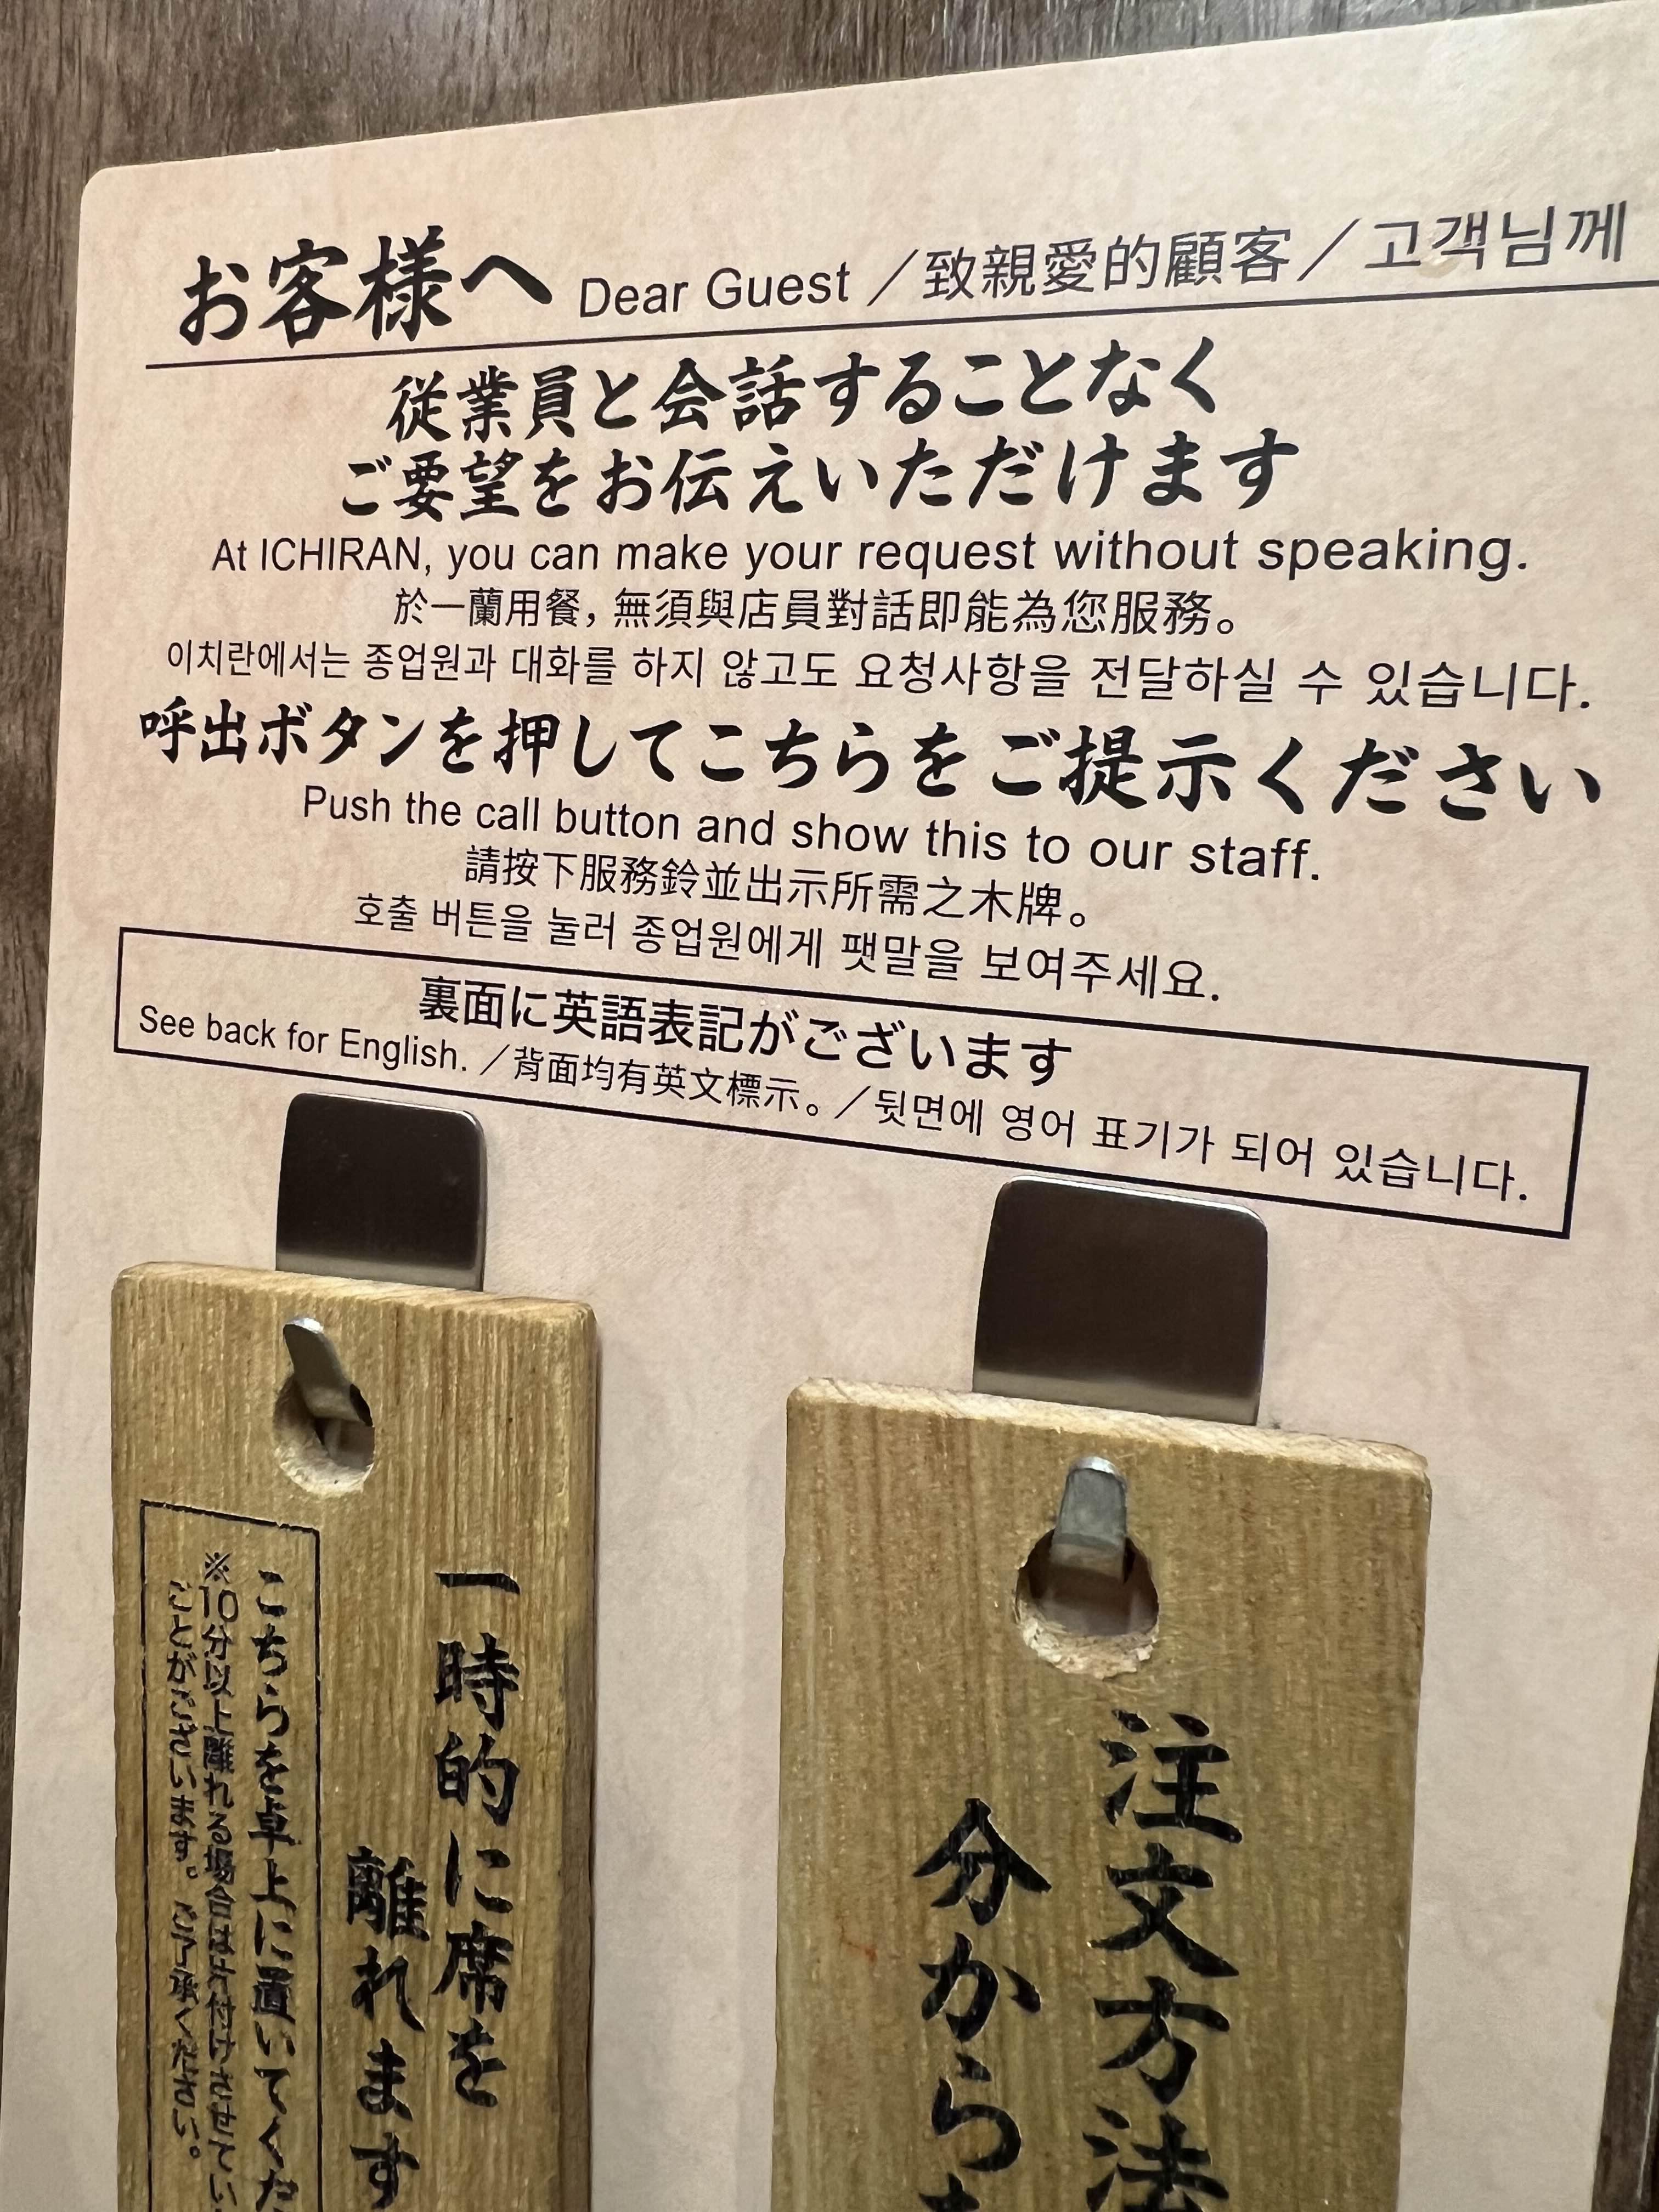 お客様へ Dear Guest ／致親愛的顧客／고객님께
従業員と会話することなく
ご要望をお伝えいただけます
At ICHIRAN, you can make your request without speaking.
於一蘭用餐，無須與店員對話即能為您服務。
이치란에서는 종업원과 대화를 하지 않고도 요청사항을 전달하실 수 있습니다.
呼出ボタンを押してこちらをご提示ください
Push the call button and show this to our staff.
請按下服務鈴並出示所需之木牌。
호출 버튼을 눌러 종업원에게 팻말을 보여주세요.
裏面に英語表記がございます
See back for English. ／背面均有英文標示。／뒷면에 영어 표기가 되어 있습니다.
一時的に席を
離れます
こちらを卓上に置いてくだ
※10分以上離れる場合は片付けさせてい
ことがございます。ご了承ください。
注文方法
分から